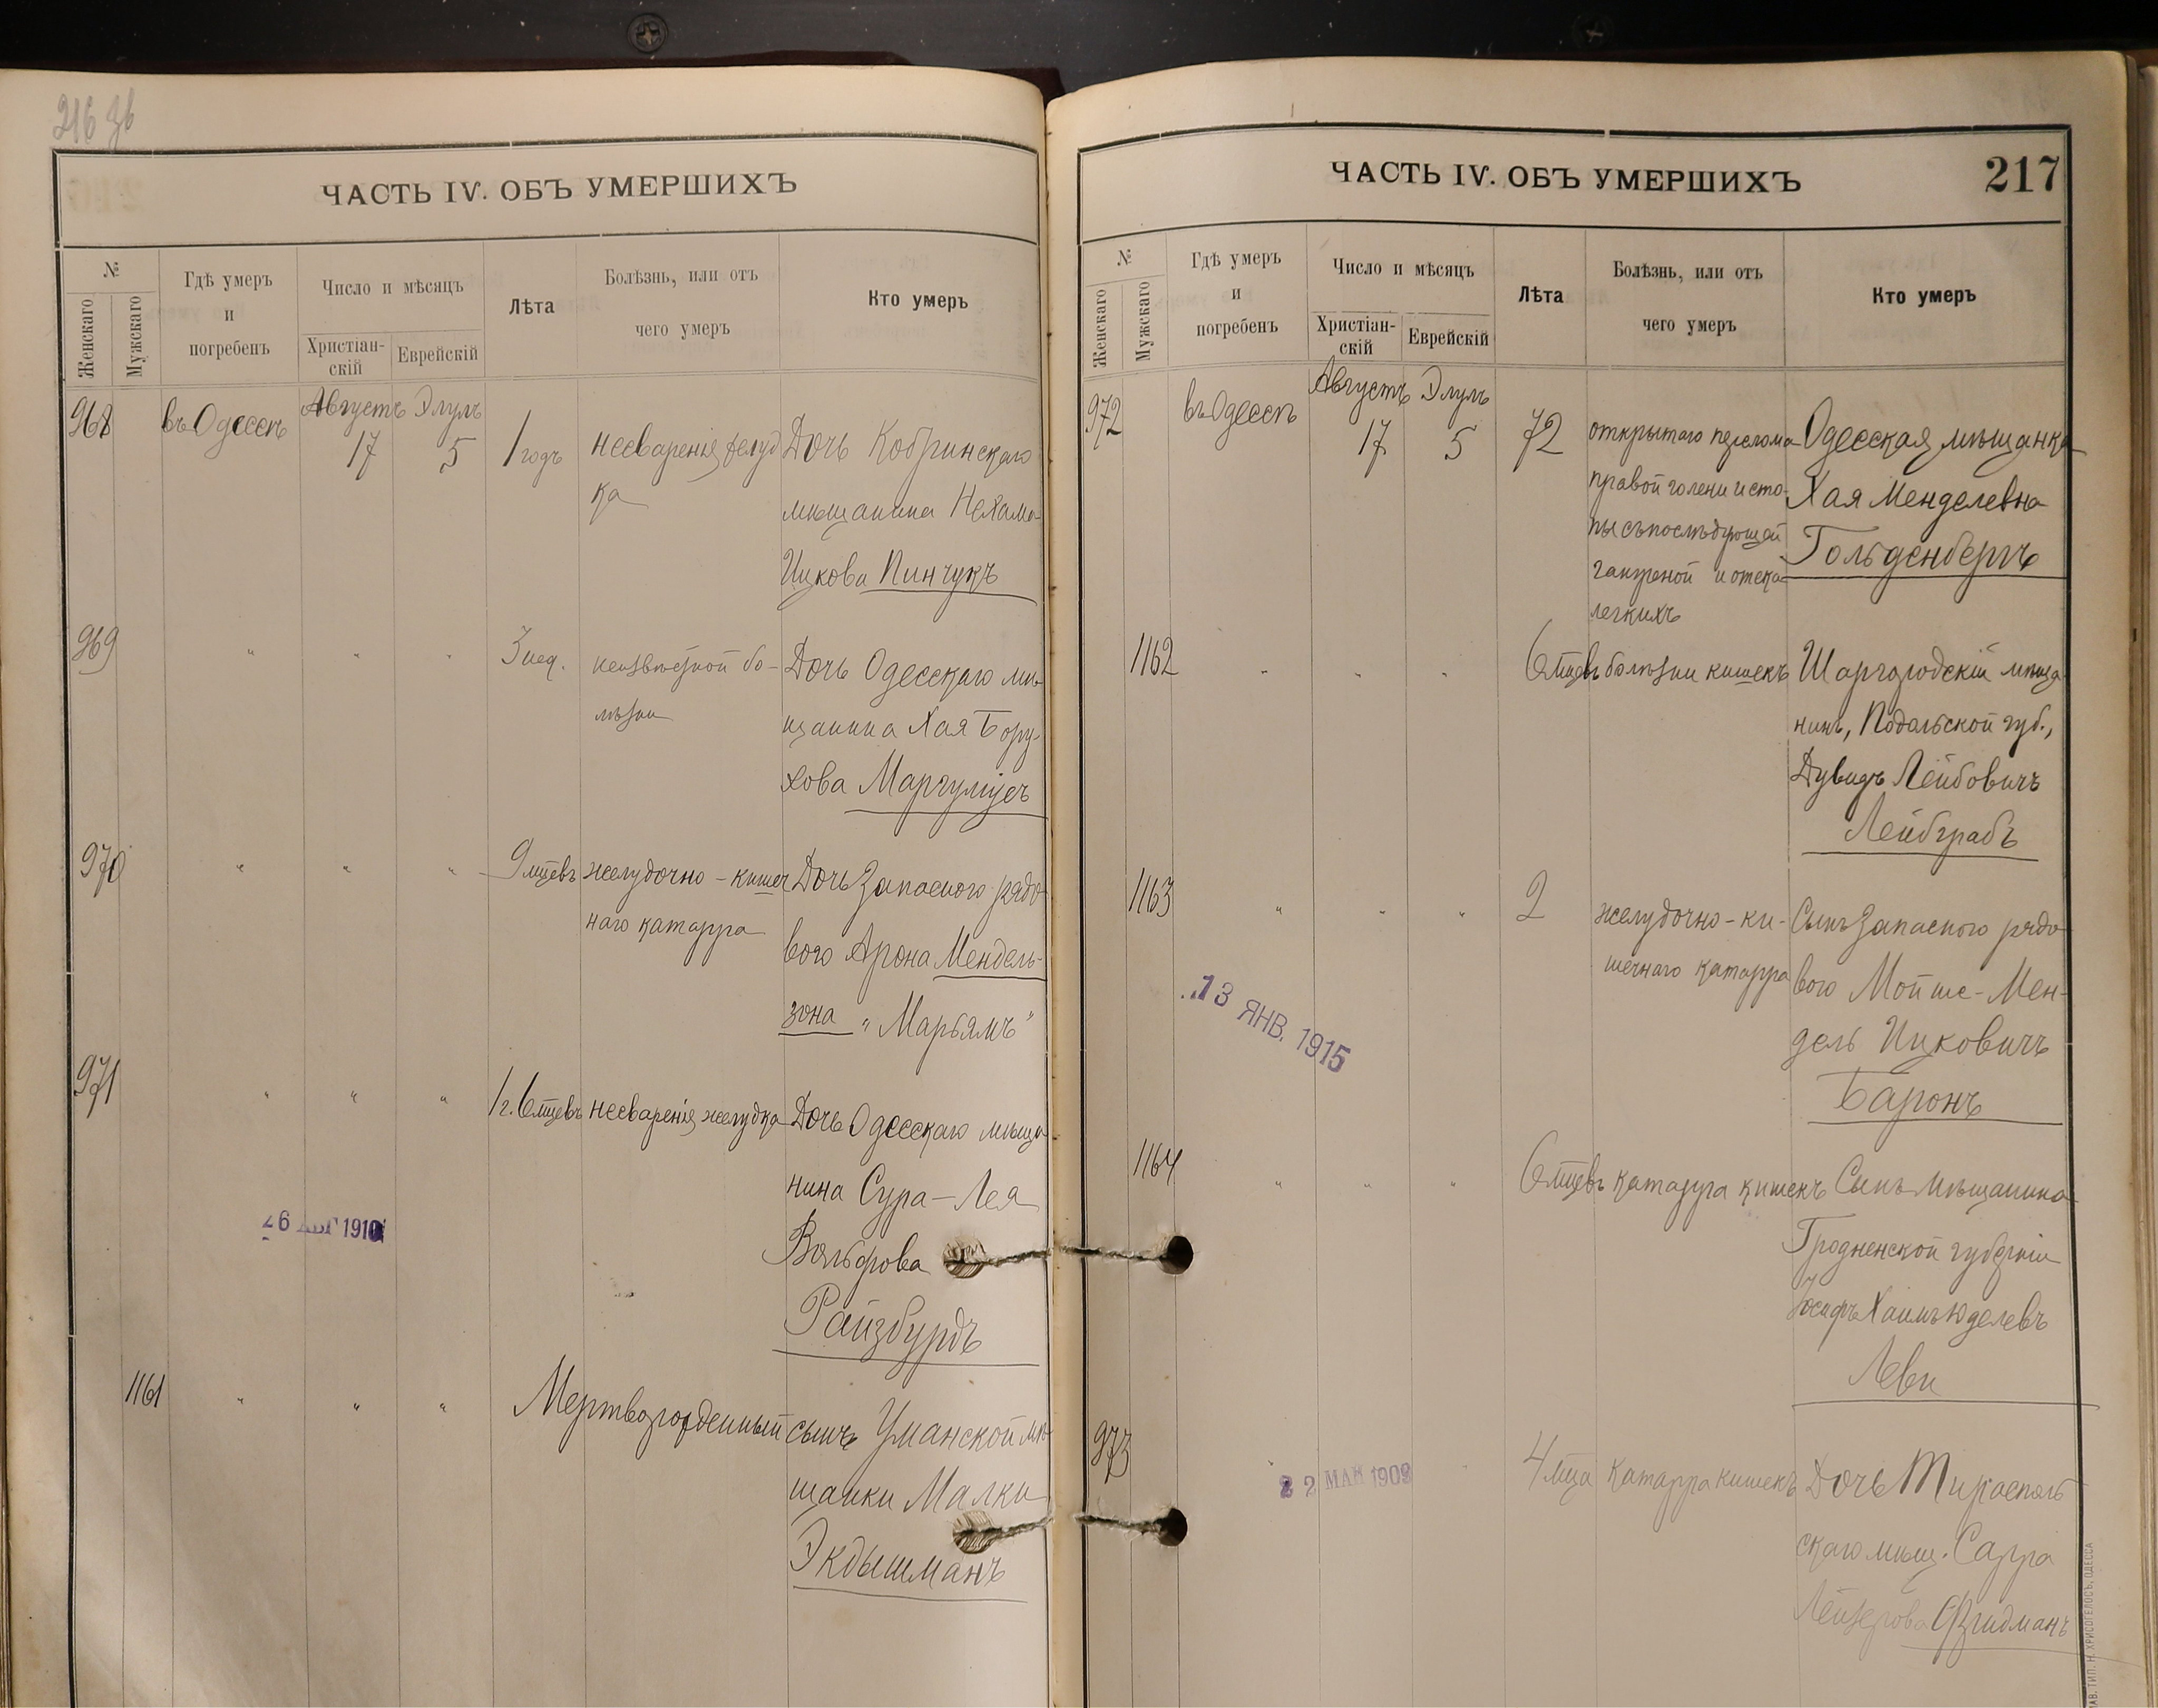 216 зв
ЧАСТЬ IV. ОБЪ УМЕРШИХЪ
№
Женскаго
Мужскаго
Гдѣ умеръ
и
погребенъ
Число и мѣсяцъ
Христіан-
скій
Еврейскій
Лѣта
Болѣзнь, или отъ
чего умеръ
Кто умеръ
968
въ Одессѣ
Августъ
17
Элулъ
5
1 годъ
несваренія желуд
ка
Дочь Кобринскаго
мѣщанина Нехама
Ицкова Пинчукъ
969
" " "
3 нед.
неизвѣстной бо-
лѣзни
Дочь Одесскаго мѣ-
щанина Хая Бору-
хова Маргулiусъ
970
" " "
9 мцевъ
желудочно-кишеч
наго катарра
Дочь запасного рядо
вого Арона Мендель-
зона "Марьямъ"
971
" " "
1 г. 6 мцевъ
несваренія желудка
Дочь Одесскаго мѣща-
нина Сура-Лея
Вольфова
Райзбурдъ
26 АВГ 1910
1161
" " "
Мертворожденный
сынъ Уманской мѣ-
щанки Малки
Экдышманъ
ЧАСТЬ IV. ОБЪ УМЕРШИХЪ
217
№
Женскаго
Мужскаго
Гдѣ умеръ
и
погребенъ
Число и мѣсяцъ
Христіан-
скій
Еврейскій
Лѣта
Болѣзнь, или отъ
чего умеръ
Кто умеръ
972
въ Одессѣ
Августъ
17
Элулъ
5
72
открытаго перелома
правой голени и сто-
пы съ послѣдующей
гангреной и отека
легкихъ
Одесская мѣщанка
Хая Менделевна
Гольденбергъ
1162
" " "
6 мцевъ
болѣзни кишекъ
Шаргородскій мѣща
нинъ, Подольской губ.,
Дувидъ Лейбовичъ
Лейбграбъ
1163
" " "
2
желудочно-ки-
шечнаго катарра
Сынъ запасного рядо
вого Мойше-Мен-
дель Ицковичъ
Баронъ
13 ЯНВ. 1915
1164
" " "
6 мцевъ
катарра кишекъ
Сынъ мѣщанина
Гродненской губерніи
Іосифъ Хаимъ Юделевъ
Леви
973
22 МАЯ 1909
4 мца
катарра кишекъ
Дочь Тирасполь
скаго мѣщ. Сарра
Лейзерова Фридманъ
ТИП. Н. ХРИСОГЕЛОСЪ, ОДЕССА